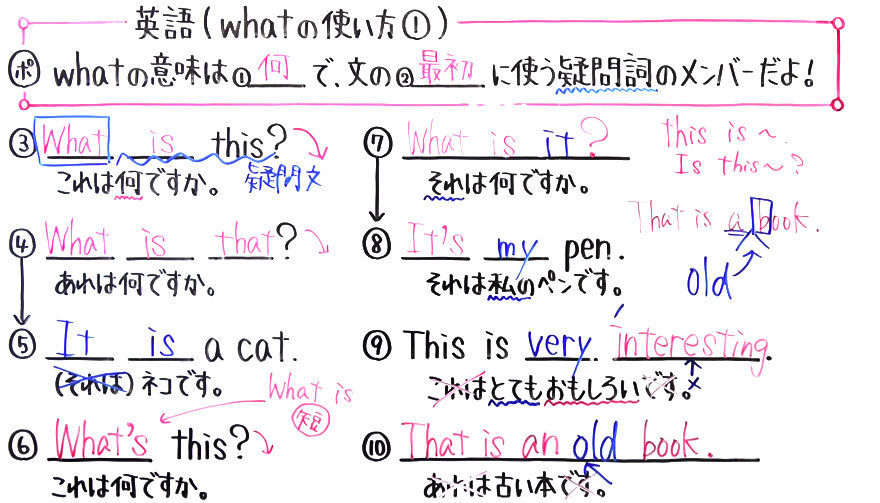 英語(whatの使い方①)
ポ whatの意味は①何で、文の②最初に使う疑問詞のメンバーだよ!
③ What is this?
これは何ですか。 疑問文
④ What is that?
あれは何ですか。
⑤ It is a cat.
(それは)ネコです。
What is
短
⑥ What's this?
これは何ですか。
⑦ What is it?
それは何ですか。
this is ~.
Is this~?
That is a book.
old
⑧ It's my pen.
それは私のペンです。
⑨ This is very interesting.
これはとてもおもしろいです。
×
⑩ That is an old book.
あれは古い本です。